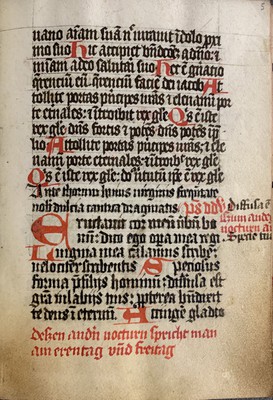 uano aīam suā nͨ iurauit ī dolo prxi
mo suo Hic accipiet bn̄dcōeꝫ a dn̄o: et
mīam a deo salutāi suo Hec ē gn̄atio
querenciū eū: querenciū faciē dei iacob At
tollite portas pͥncipes ur̄as: et eleuamī por
te et'nales: et ītroibit rex gl'e Qͥs ē iste
rex gl'e dn̄s fortis et potēs dn̄s potēs ī p̄
lio Attollite portas pͥncipes ur̄as: et ele
uamī porte eternales: et ītroibit rex gl'e
Qͥs ē iste rex gl'e: dn̄s uirtutū ipse ē rex gl'e
Ante thorum huius uirginis frequētate
nobis dulcia cantica dragmatis Ps dd Diffusa ē
Eructauit cor meū ubū bo
nū: dico ego opera mea regi
Lingua mea calamus scribe:
uelociter scribentis Speciosus
forma p̄ filijs hominū: diffusa est
grā in labijs tuis: ppterea bn̄dixit
te deus ī eternū. Accingere gladio
desen andn̄ nocturn spricht man
am erentag vnd freitag
nocturn an
Specie